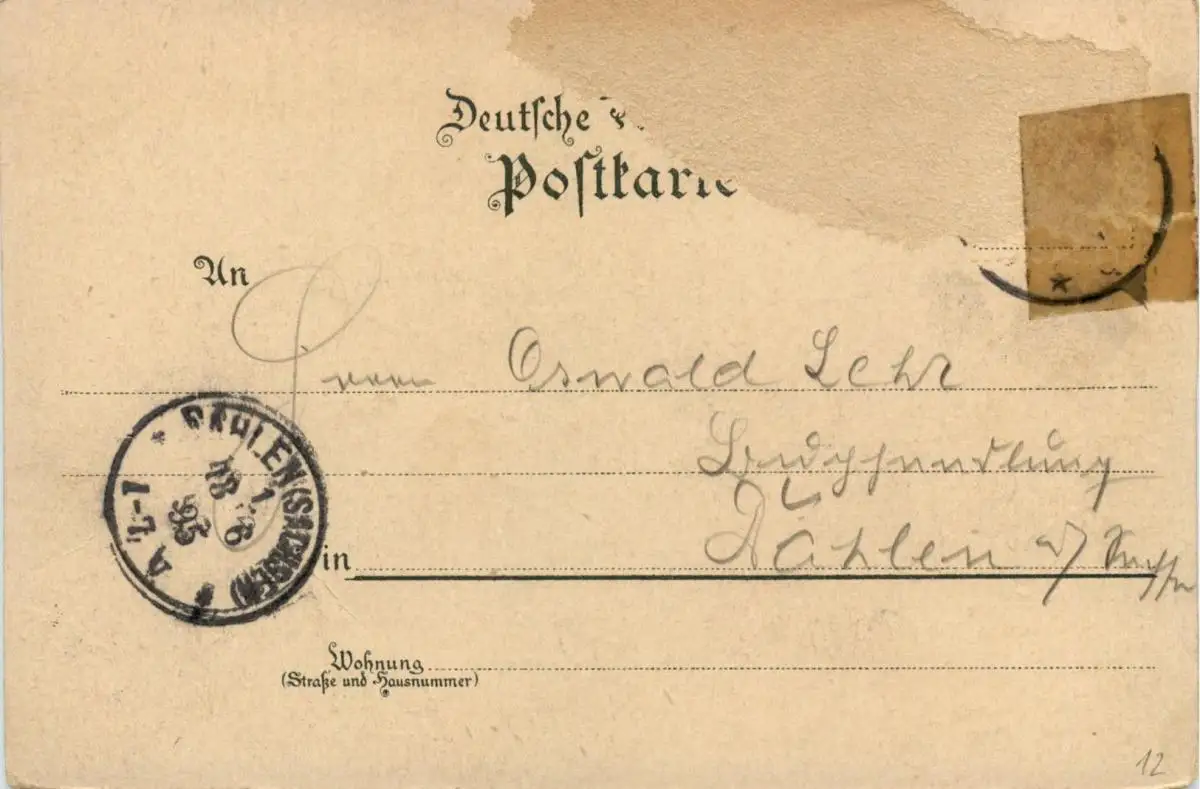 Deutsche
Postkarte
An
Herrn Oswald Lehr
Buchhandlung
in Dahlen i/ Sachsen
Wohnung
(Straße und Hausnummer)
DAHLEN (SACHSEN)
18 6
95
12